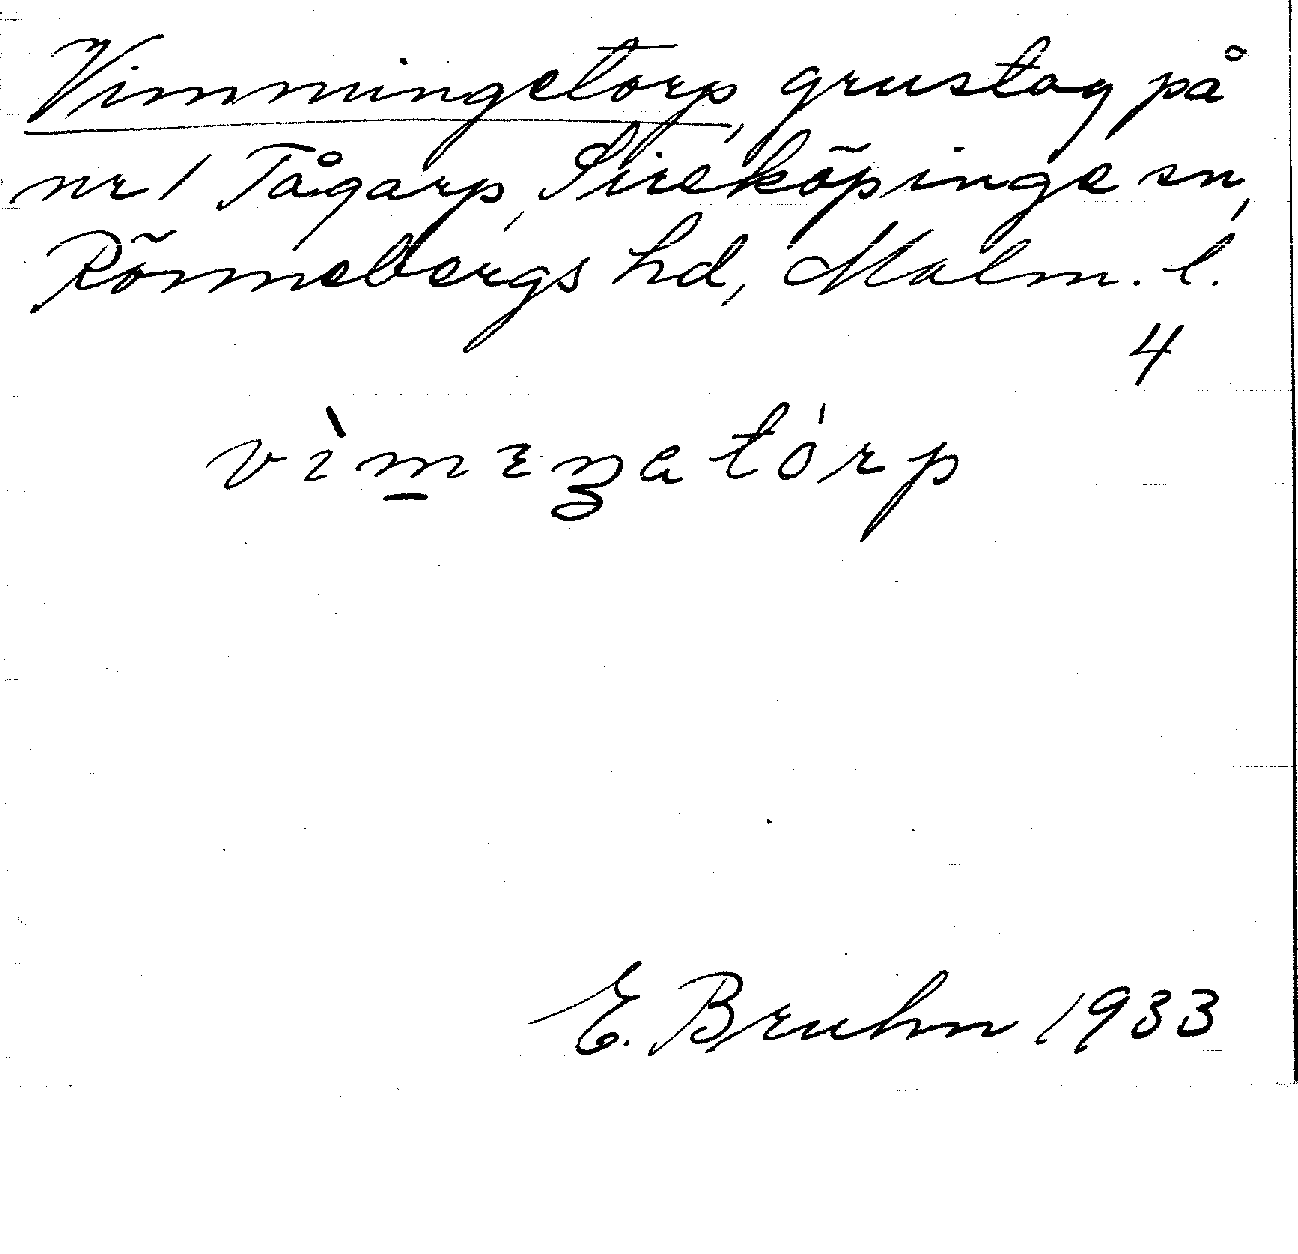 Vimmingetorp, grustag på
nr 1 Tågarp, Sireköpinge sn,
Rönnebergs hd, Malm. l.
4
E. Bruhn 1933